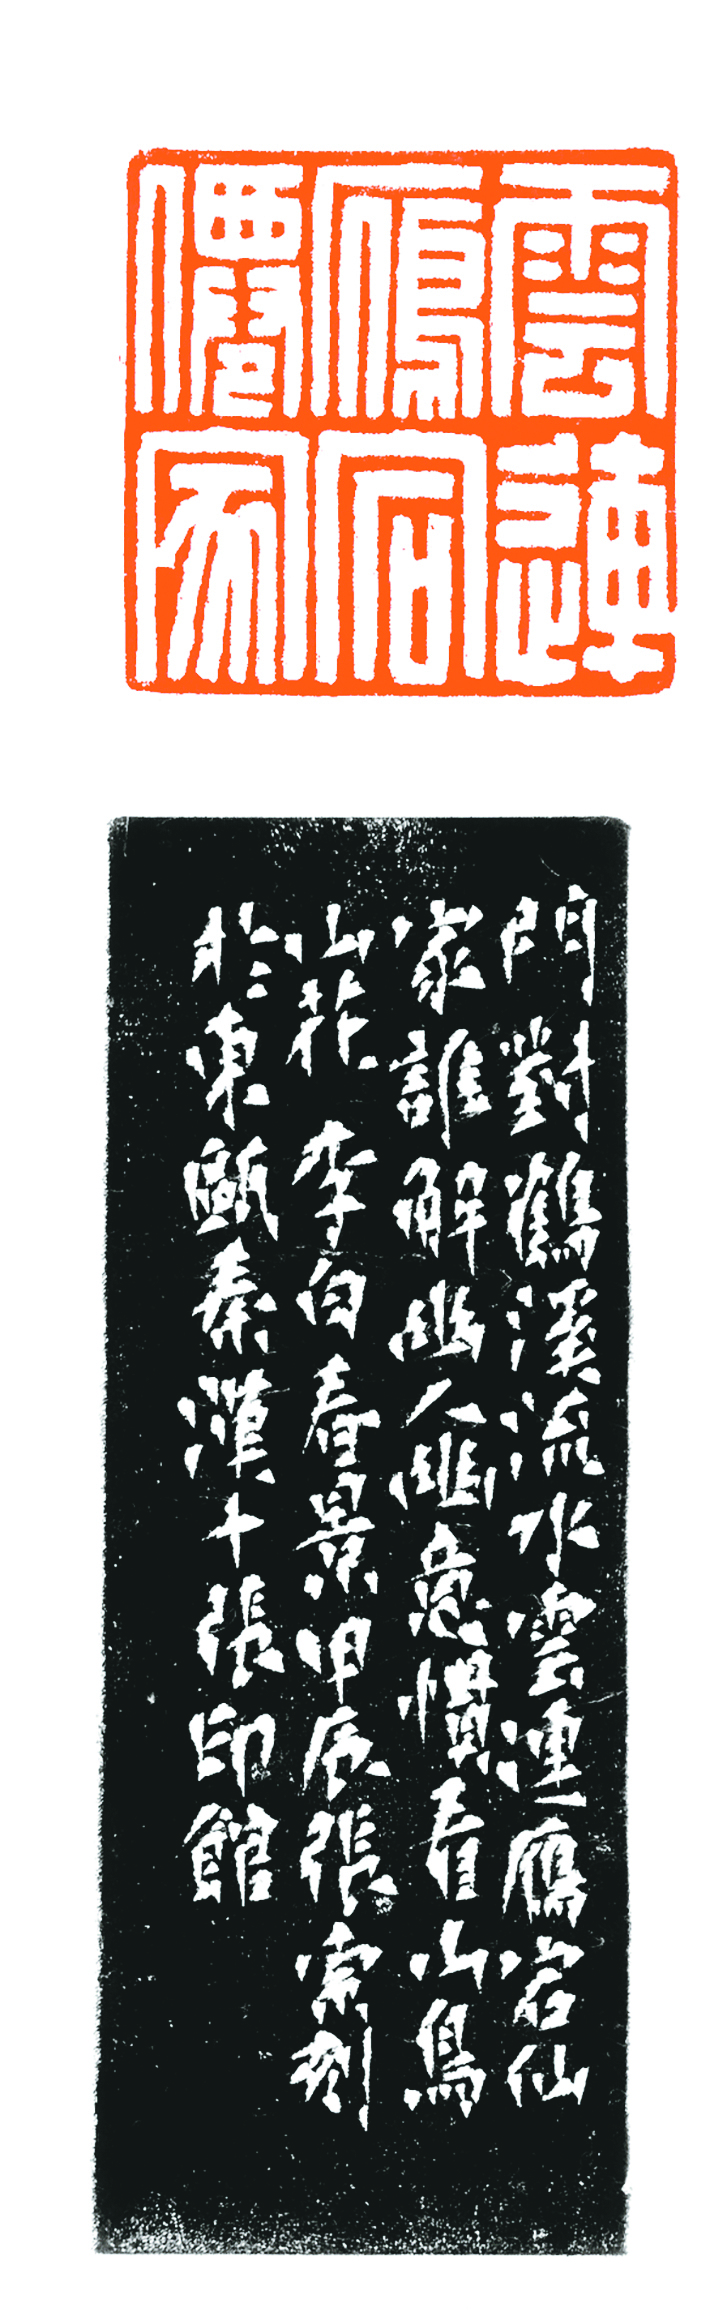 雲連
鴈宕
僊家
門對鶴溪流水雲連鴈宕仙
家誰解幽人幽意慣看山鳥
山花 李白春景甲辰張索刻
於東甌秦漢十張印館